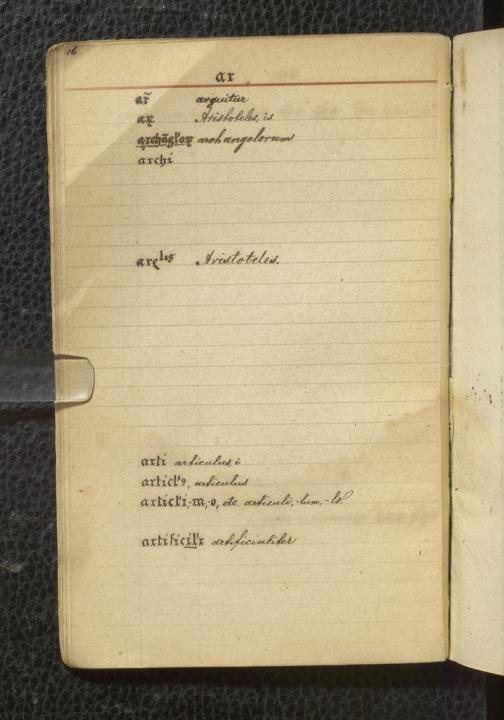 16
ar
ar̃ arguitur
ar Aristoteles, is
archãgl'oꝝ archangelorum
archi
areles Aristoteles.
arti articulus, i
articl'9, articulus
articl'i,-m,-o, etc. articuli,-lum,-lo
artificil'r artificialiter